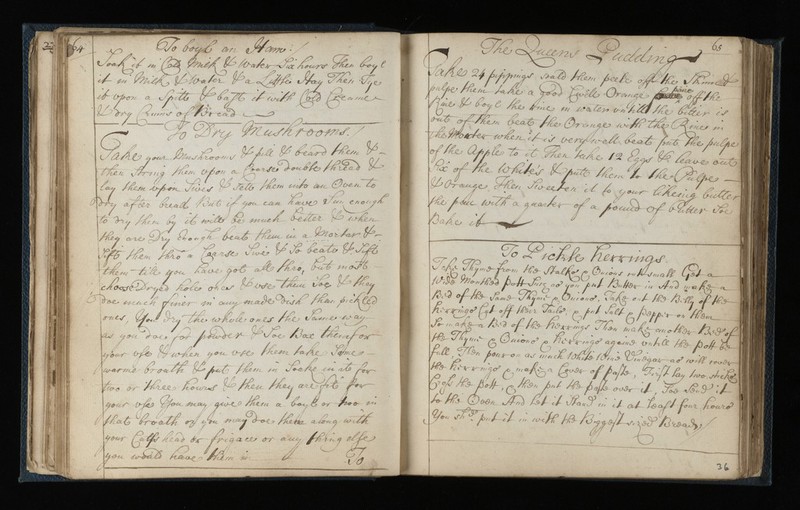 64
To boyl an Ham:/
Soak it in Milk & Water Six hours Then boyl
it in Milk & Water & a Little Hay Then Tye
it upon a Spitt & bast it with Cold Creame
& dry Crums of bread
To Dry Mushrooms./
Take your Mushrooms & pill & beard them &
then string them upon a Coarse double thread &
lay them upon Sives & Sett them into an Oven to
dry after bread But if you can have Sun enough
to dry them by it will be much better & when
they are Dry enough beate them in a Mortar &
sift them thro a Coarse Sive & So beate & Sift
them till you have got all thro, but most
choose Dryed hole ones & use them Soe & they
doe much finer in any made Dish than pickled
ones. You dry the whole ones the Same way
as you doe for powder & Soe Use them for
your use & when you use them take Some
warme broath & put them in Soake in it for
two or three hours & then they are fit for
your use You may give them a boyl or two in
that broath or you may doe them along with
your Calfs head or frigacee or any thing else
you would have them in
To
65
The Queens Pudding
Take 24 pippings scald them peele off the Skins &
pulpe them take a good Civille Orange pare off the
Rine & boyl the rine in water untill the bitter is
out of them beat the Orange with the Rines in
the Morter when it is very small beate put the pulpe
of the Apple to it Then take 12 Eggs & leave out
Six of the Whites & put them to the Pulpe
& Orange then Sweeten it to your likeing butter
the pan with a quarter of a pound of butter Soe
Bake it
To Pickle Herrings
Take Thyme from the Stalks & Onions cutt small Gett a
wide Mouthed pott first as you put Butter in And make a
Bed of the Same Thyme & Onions. Take out the Belly of the
herrings Cut off their Tailes & put Salt & pepper on them
So make a Bed of the herrings Then make another Bed of
the Thyme & Onions & herrings againe untill the pott be
full. Then poar on as much White Wine Vinegar as will cover
the herrings & make a Cover of paste. First lay two sticks
Cross the pott & then put the paste over it, Soe Send it
to the Oven And let it Stand in it at least four hours
You Shd. put it in with the Biggest sized Bread./
36